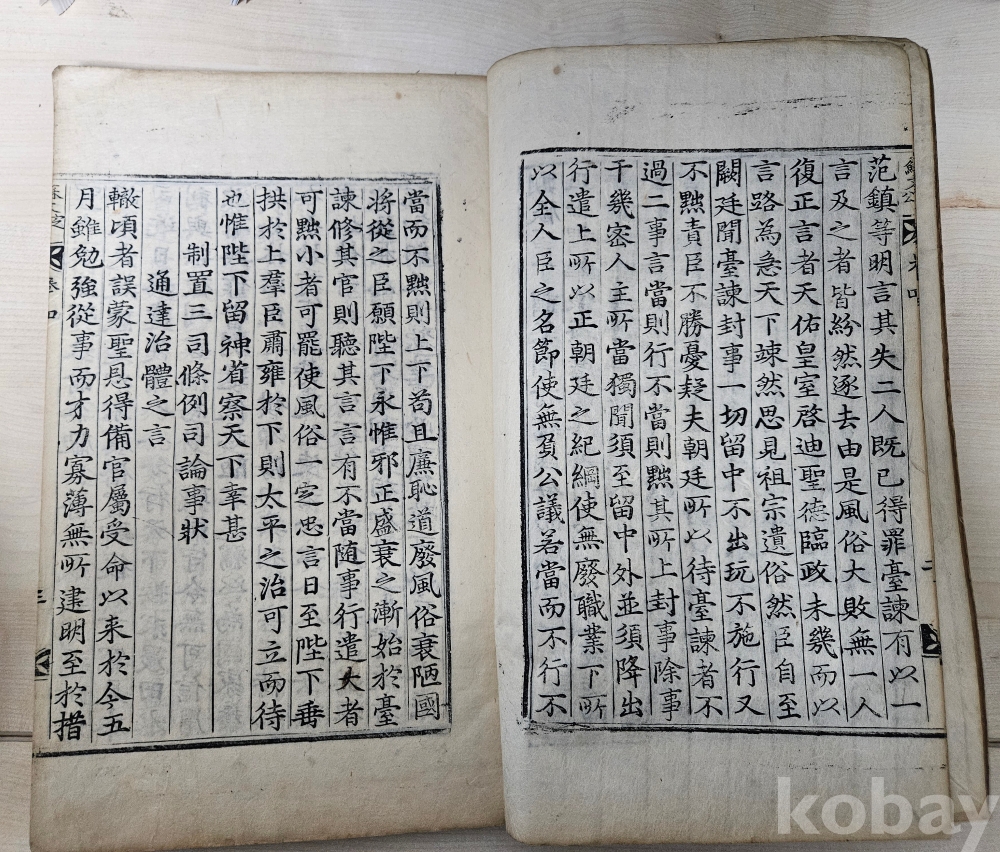 范鎮等明言其失二人既已得罪臺諫有以一
言及之者皆紛然逐去由是風俗大敗無一人
復正言者天佑皇室啓迪聖德臨政未幾而以
言路為急天下竦然思見祖宗遺俗然臣自至
闕廷聞臺諫封事一切留中不出玩不施行又
不黜責臣不勝憂疑夫朝廷所以待臺諫者不
過二事言當則行不當則黜其所上封事除事
干幾密人主所當獨聞須至留中外並須降出
行遣上所以正朝廷之紀綱使無廢職業下所
以全人臣之名節使無負公議若當而不行不
二
當而不黜則上下苟且廉恥道廢風俗衰陋國
將從之臣願陛下永惟邪正盛衰之漸始於臺
諫修其官則聽其言言有不當随事行遣大者
可黜小者可罷使風俗一定忠言日至陛下垂
拱於上羣臣肅雍於下則太平之治可立而待
也惟陛下留神省察天下幸甚
制置三司條例司論事狀
通達治體之言
轍頃者誤蒙聖恩得備官屬受命以来於今五
月雖勉強從事而才力寡薄無所建明至於措
三
kobay